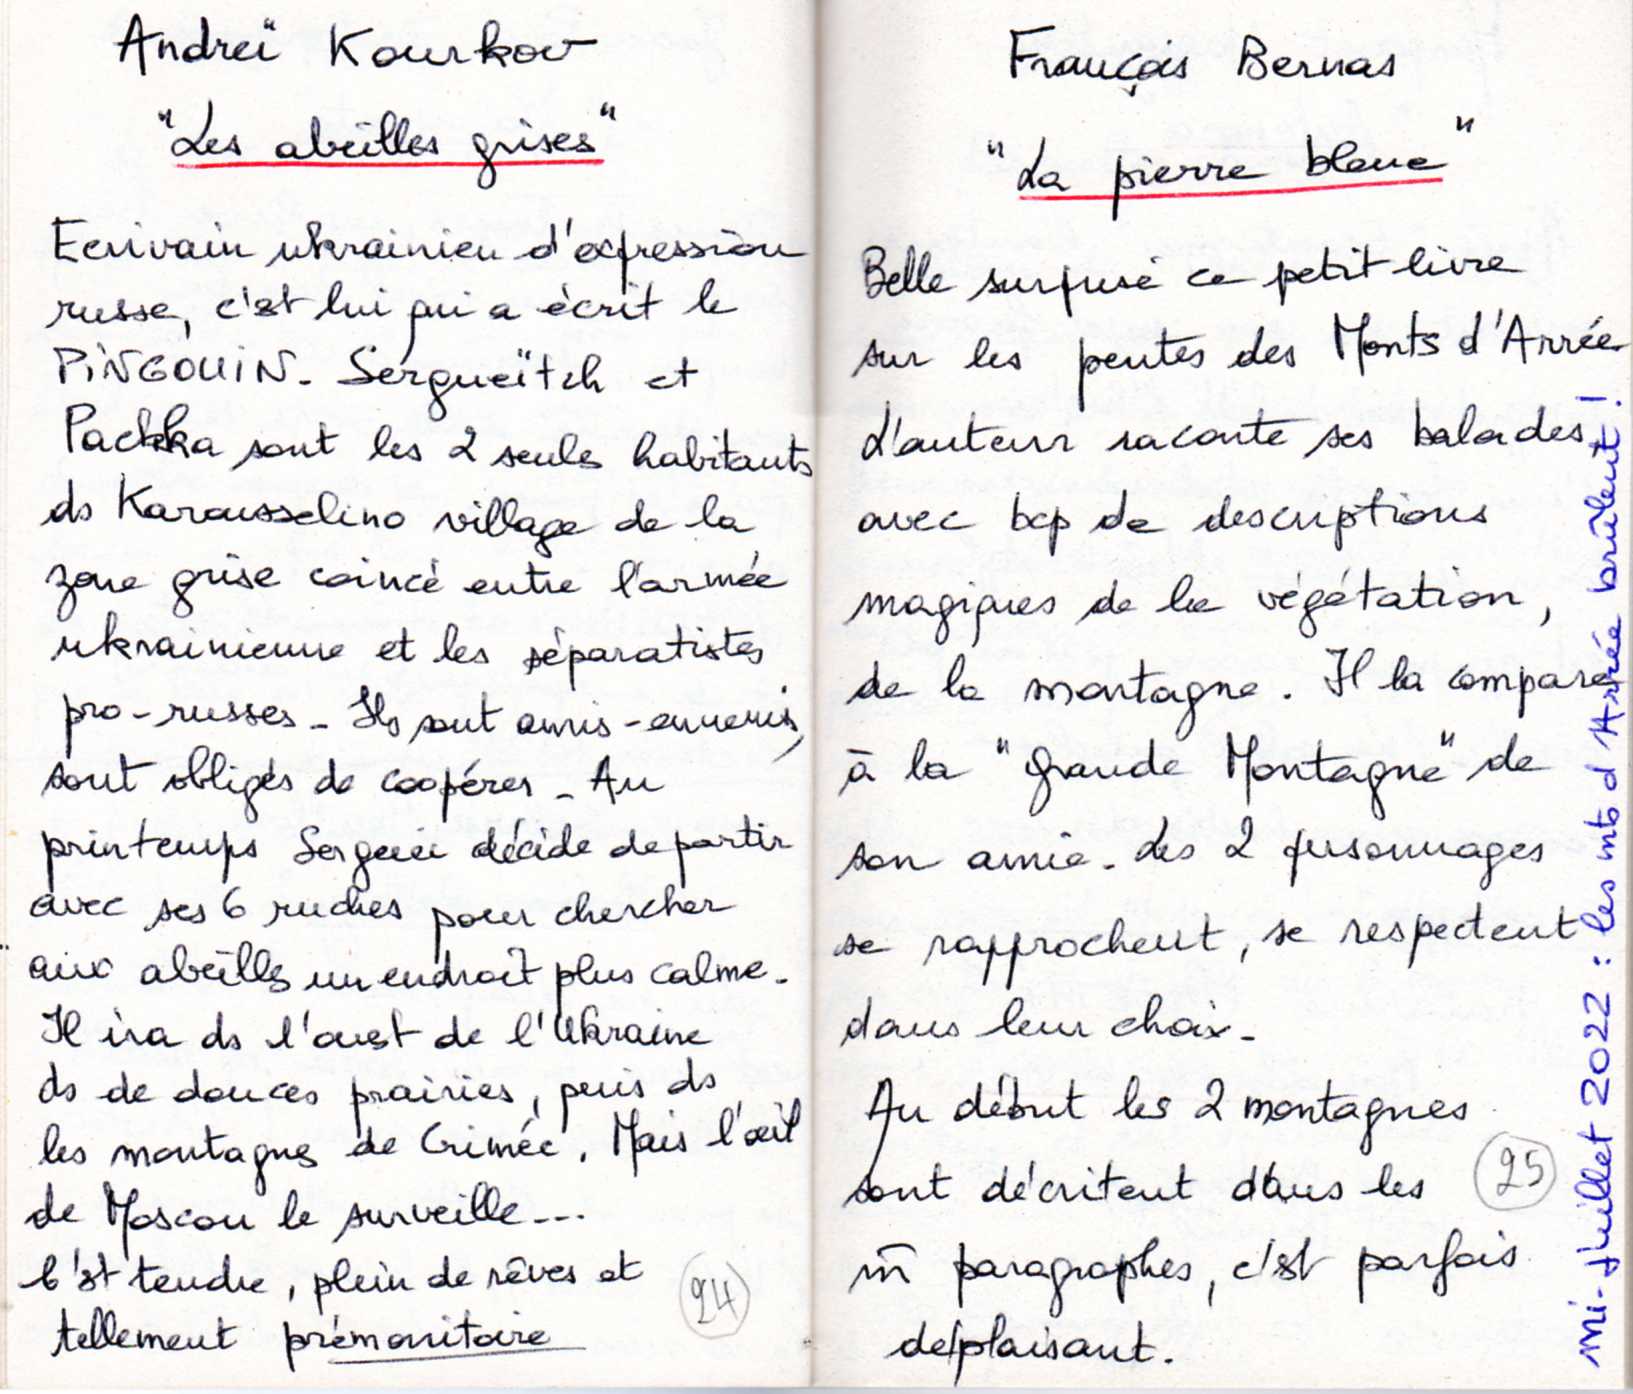 Andreï Kourkov
"Les abeilles grises"
Ecrivain ukrainien d'expression
russe, c'est lui qui a écrit le
PINGOUIN - Sergueïtch et
Pachka sont les 2 seuls habitants
ds Karousselino village de la
zone grise coincé entre l'armée
ukrainienne et les séparatistes
pro-russes - Ils sont amis-ennemis,
sont obligés de coopérer - Au
printemps Sergueï décide de partir
avec ses 6 ruches pour chercher
aux abeilles un endroit plus calme -
Il ira ds l'ouest de l'Ukraine
ds de douces prairies, puis ds
les montagnes de Crimée. Mais l'œil
de Moscou le surveille...
C'est tendre, plein de rêves et
tellement prémonitoire
24
François Bernas
"La pierre bleue"
Belle surprise ce petit livre
sur les pentes des Monts d'Arrée
L'auteur raconte ses balades,
avec bcp de descriptions
magiques de la végétation,
de la montagne. Il la compare
à la "grande Montagne" de
son amie - Les 2 personnages
se rapprochent, se respectent
dans leur choix -
Au début les 2 montagnes
sont décritent dans les
m̄ paragraphes, c'est parfois
déplaisant.
25
mi-juillet 2022 : les mts d'Arrée brûlent !